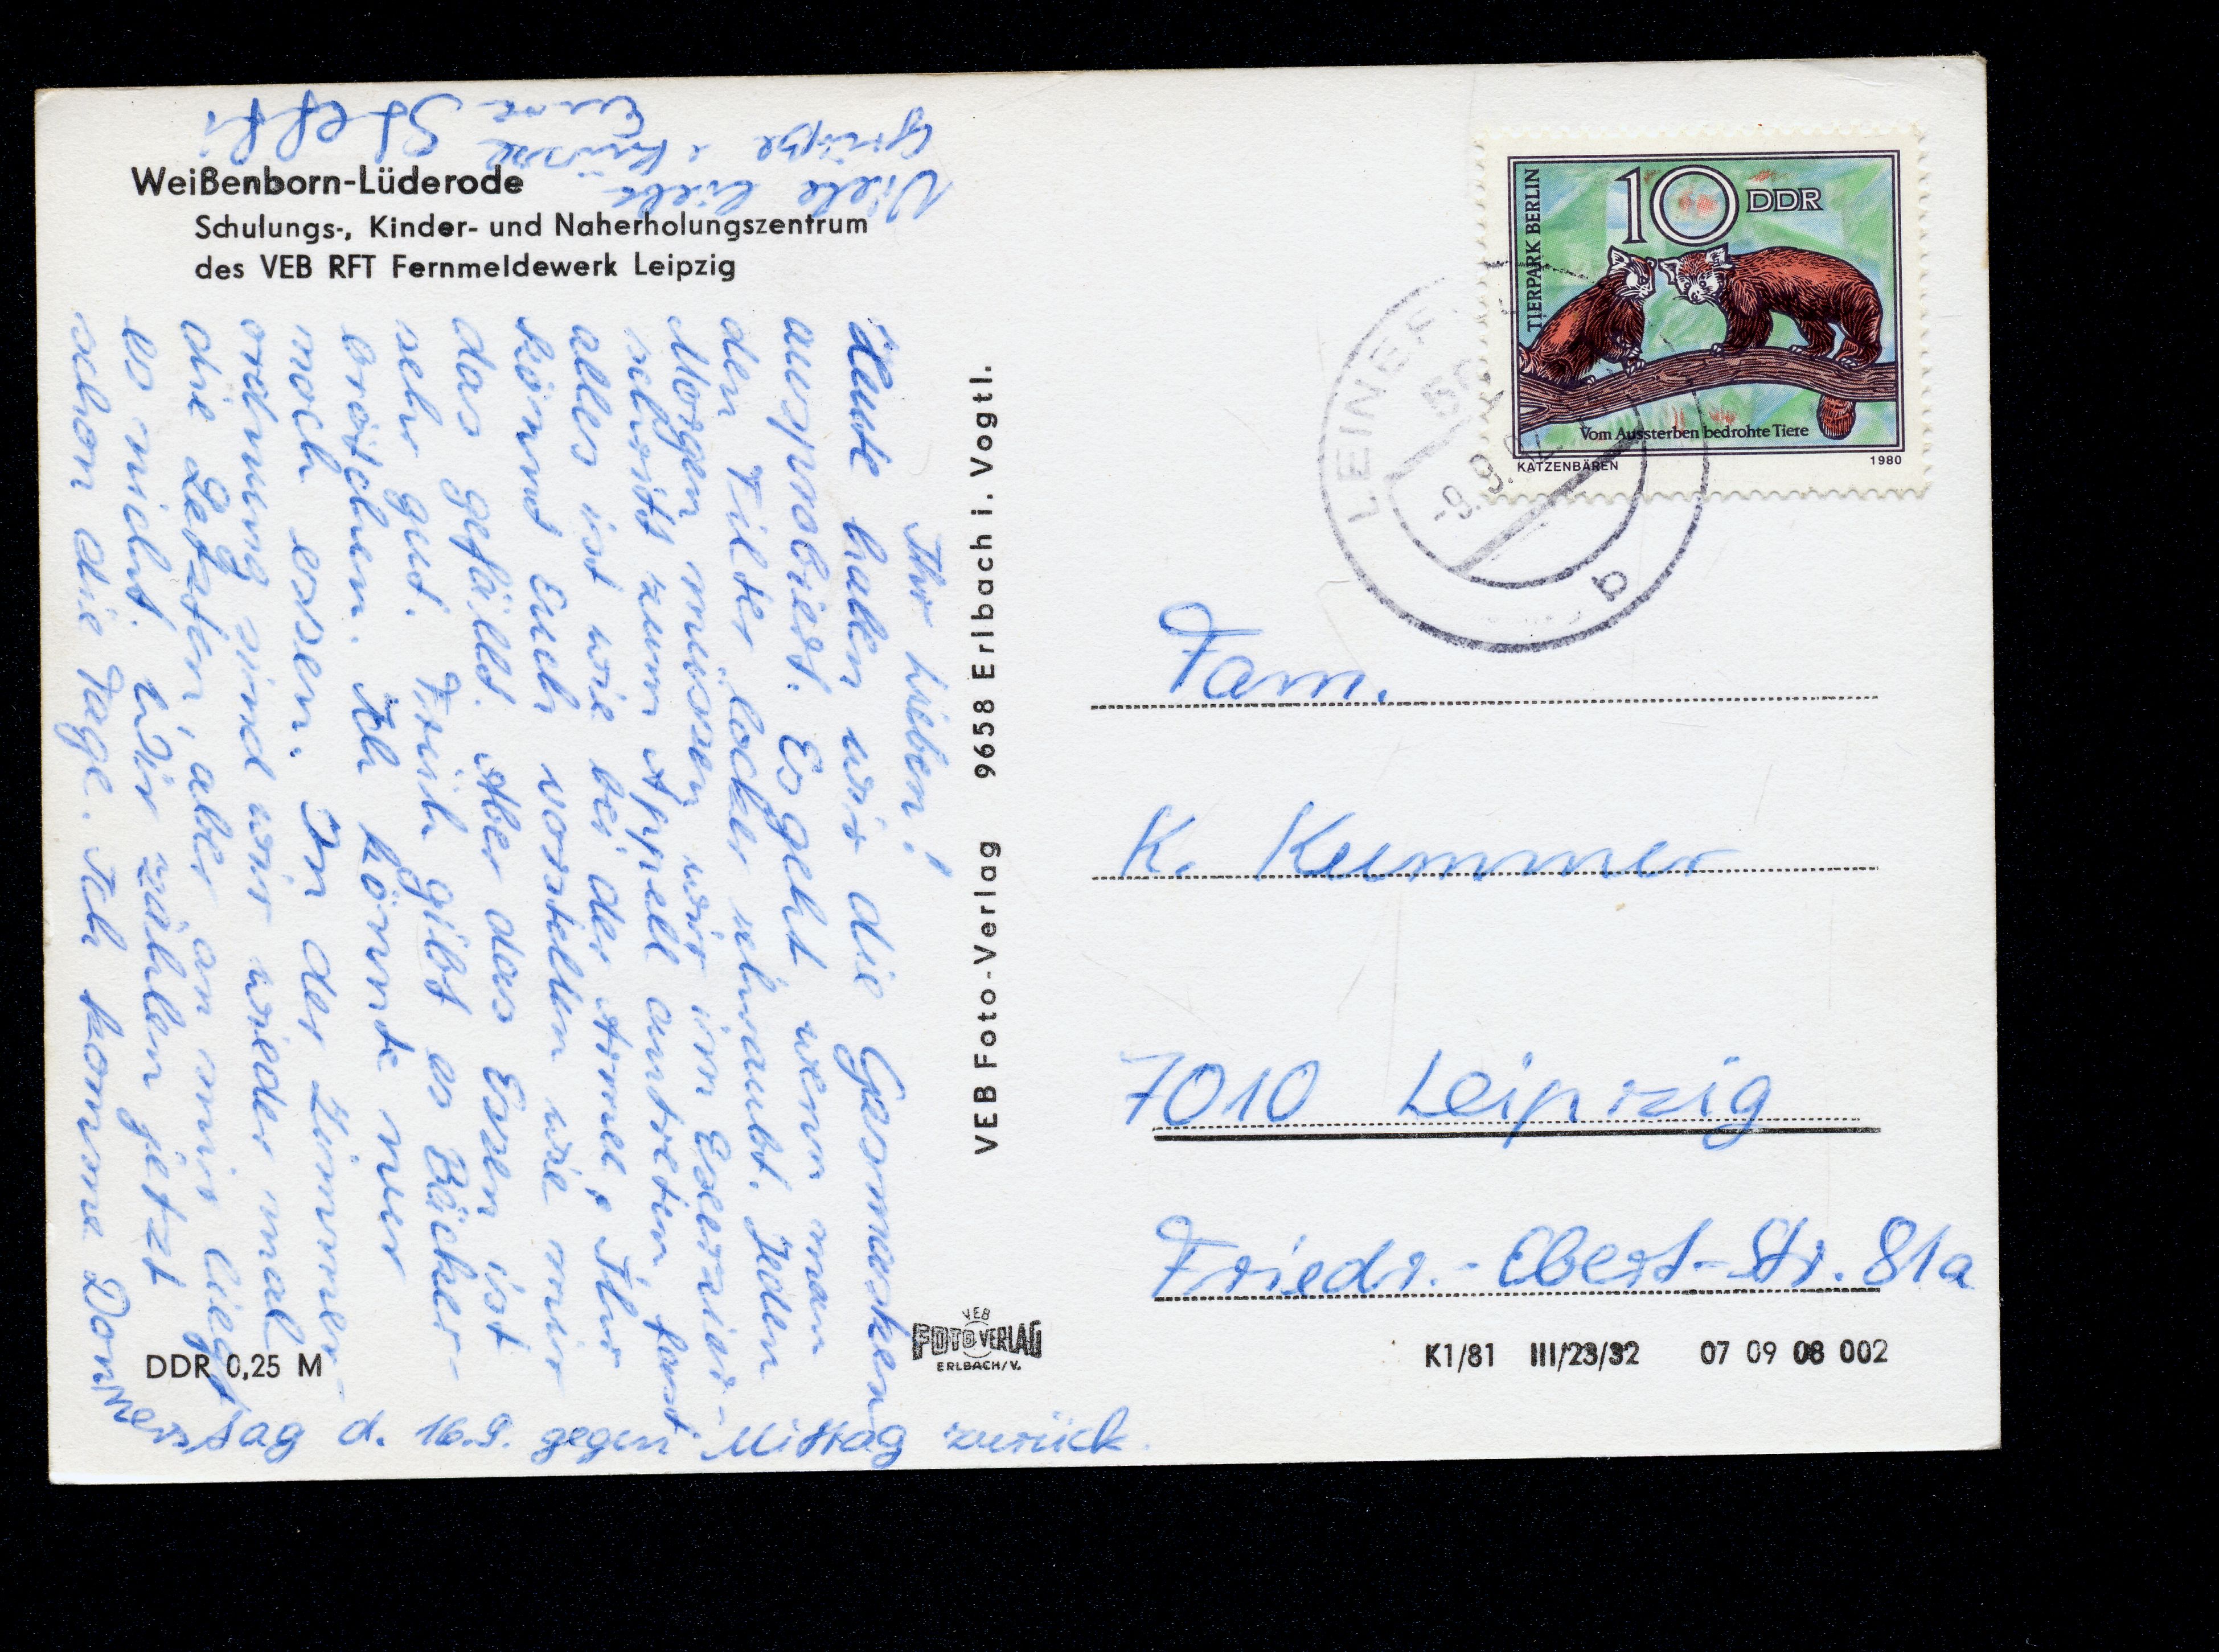 Weißenborn-Lüderode
Schulungs-, Kinder- und Naherholungszentrum
des VEB RFT Fernmeldewerk Leipzig
Ihr Lieben!
Heute haben wir die Gasmasken
ausprobiert. Es geht wenn man
den Filter locker schraubt. Jeden
Morgen müssen wir im Exerzier-
schritt zum Appell antreten, fast
alles ist wie bei der Armee, Ihr
könnt Euch vorstellen wie mir
das gefällt. Aber das Essen ist
sehr gut. Früh gibt es Bäcker-
brötchen. Ich könnte nur
noch essen. In der Zimmer-
ordnung sind wir wieder mal
die Letzten, aber an mir liegt
es nicht. Wir zählen jetzt
schon die Tage. Ich komme Donnerstag d. 16.9. gegen Mittag zurück.
Viele liebe
Grüße & Küsse
Eure Steffi
DDR 0,25 M
VEB Foto-Verlag 9658 Erlbach i. Vogtl.
VEB
FOTO VERLAG
ERLBACH/V.
TIERPARK BERLIN
10 DDR
Vom Aussterben bedrohte Tiere
KATZENBÄREN 1980
LEINEF
-9.9.
b
Fam.
K. Kummer
7010 Leipzig
Friedr.-Ebert-Str. 81a
K1/81 III/23/32 07 09 08 002